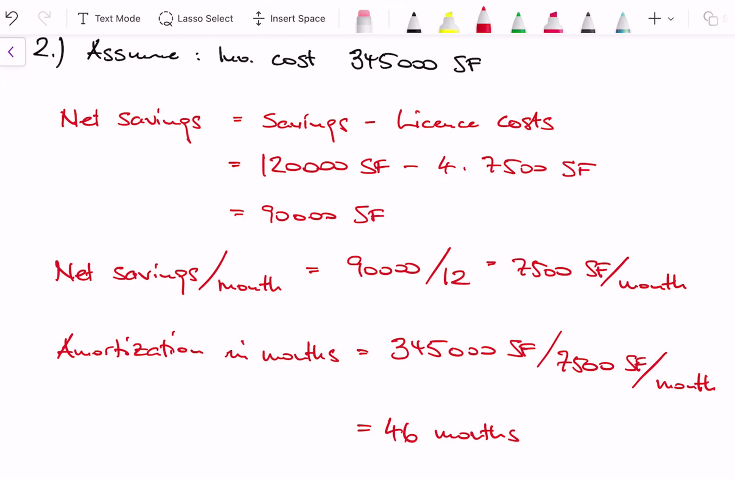 Text Mode Lasso Select Insert Space
2.) Assume: Inv. cost 345000 SF
Net savings = Savings - Licence costs
= 120000 SF - 4. 7500 SF
= 90000 SF
Net savings/month = 90000/12 = 7500 SF/month
Amortization in months = 345000 SF/7500 SF/month
= 46 months